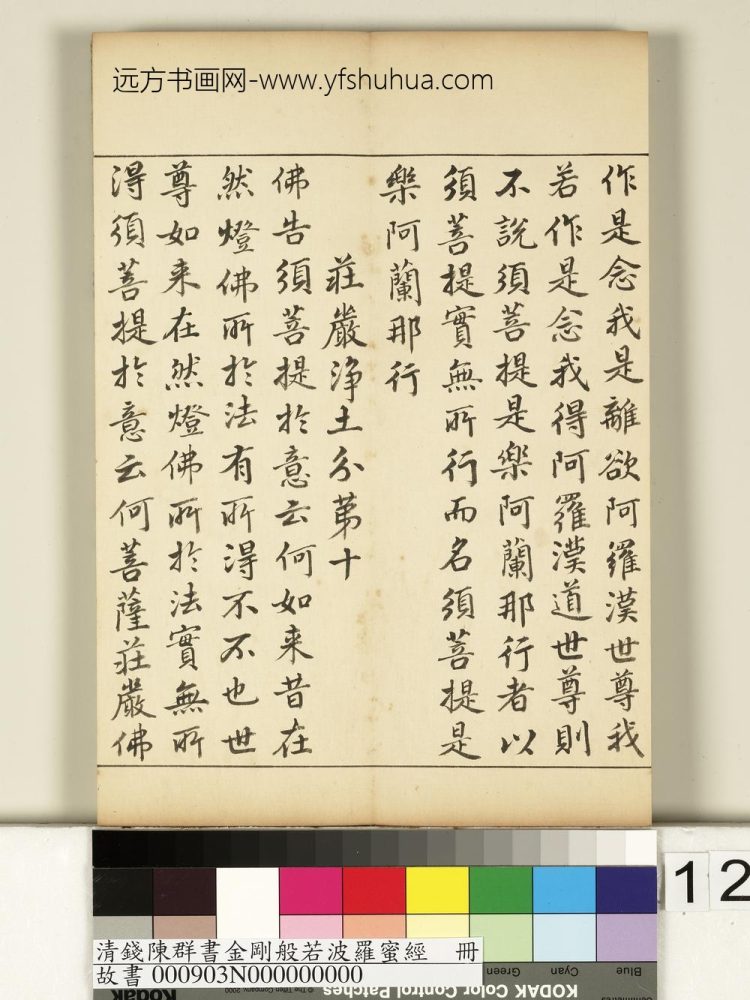 远方书画网-www.yfshuhua.com
作是念我是離欲阿羅漢世尊我
若作是念我得阿羅漢道世尊則
不說須菩提是樂阿蘭那行者以
須菩提實無所行而名須菩提是
樂阿蘭那行
莊嚴淨土分第十
佛告須菩提於意云何如来昔在
然燈佛所於法有所得不不也世
尊如来在然燈佛所於法實無所
得須菩提於意云何菩薩莊嚴佛
12
清錢陳群書金剛般若波羅蜜經 冊
故書 000903N000000000
Green
Cyan
Blue
Kodak
© The Tiffen Company, 2000
KODAK Color Control Patches